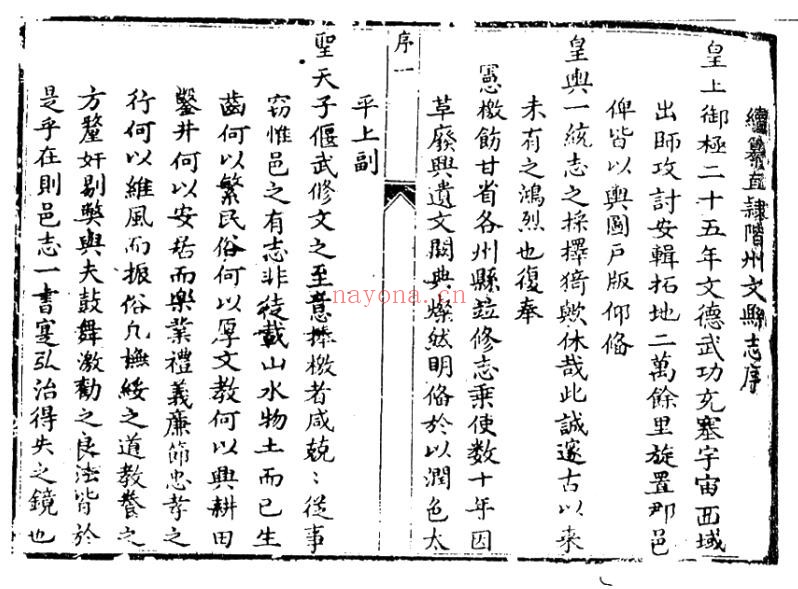 續纂直隸階州文縣志序
皇上御極二十五年文德武功充塞宇宙西域
出師攻討安輯拓地二萬餘里旋置郡邑
俾皆以輿圖戶版仰俻
皇輿一統志之採擇猗歟休哉此誠邃古以来
未有之鴻烈也復奉
憲檄飭甘省各州縣竝修志乗使数十年因
草廢興遺文闕典燦然明俻於以潤色太
序一
平上副
聖天子偃武修文之至意捧檄者咸兢〻從事
窃惟邑之有志非徒載山水物土而已生
齒何以繁民俗何以厚文教何以興耕田
鑿井何以安居而樂業禮義廉節忠孝之
行何以維風而振俗凡撫綏之道教養之
方釐奸剔弊與夫鼓舞激勸之良法皆於
是乎在則邑志一書寔弘治得失之鏡也
nayona.cn